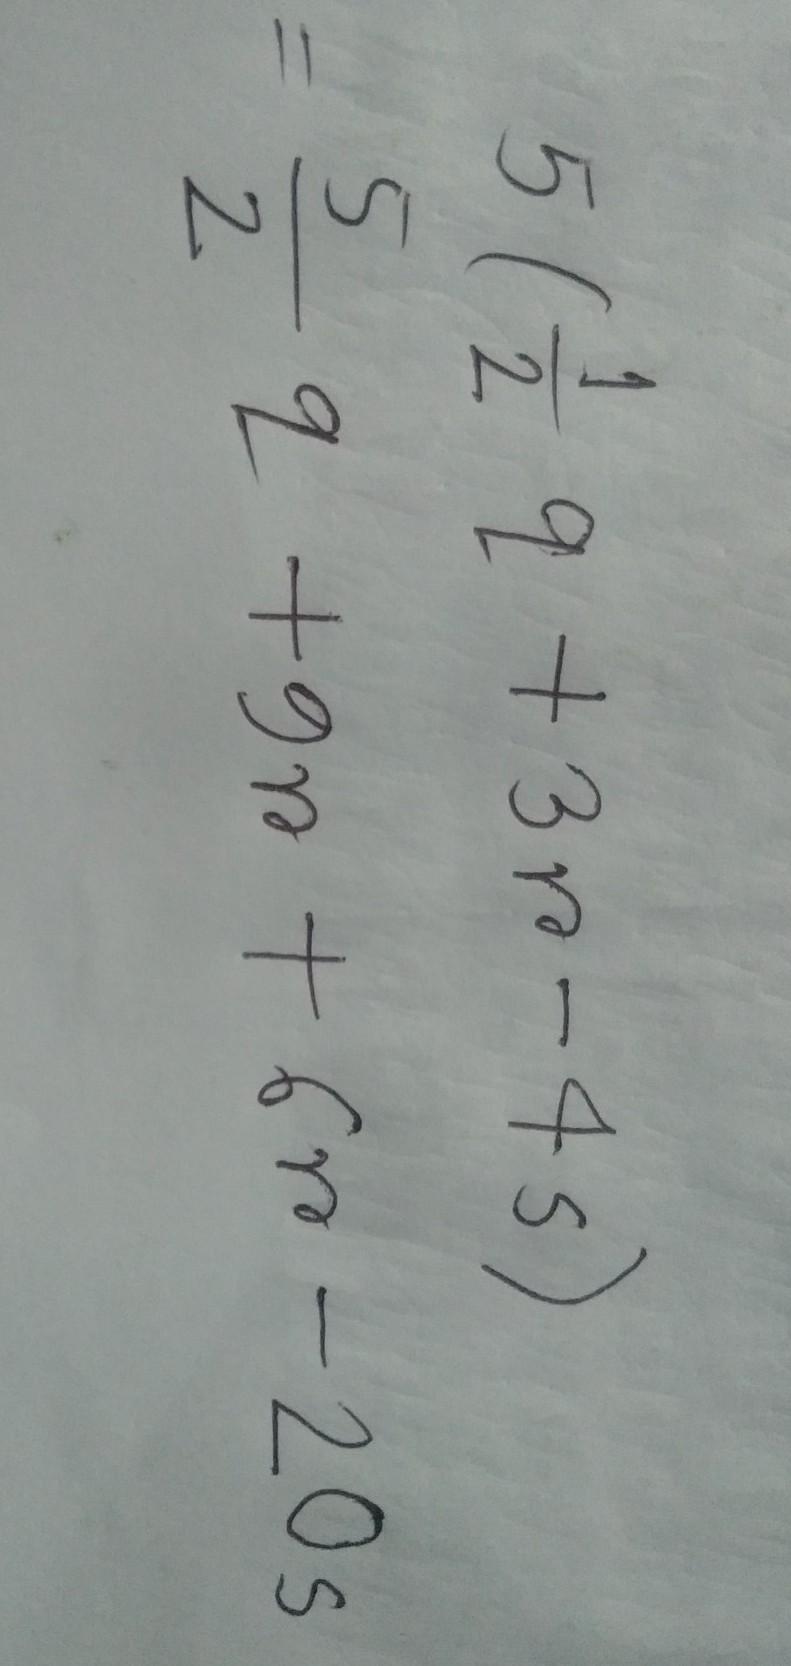 5(1/2 q + 3r - 4s)
= 5/2 q + 9r + 6r - 20s